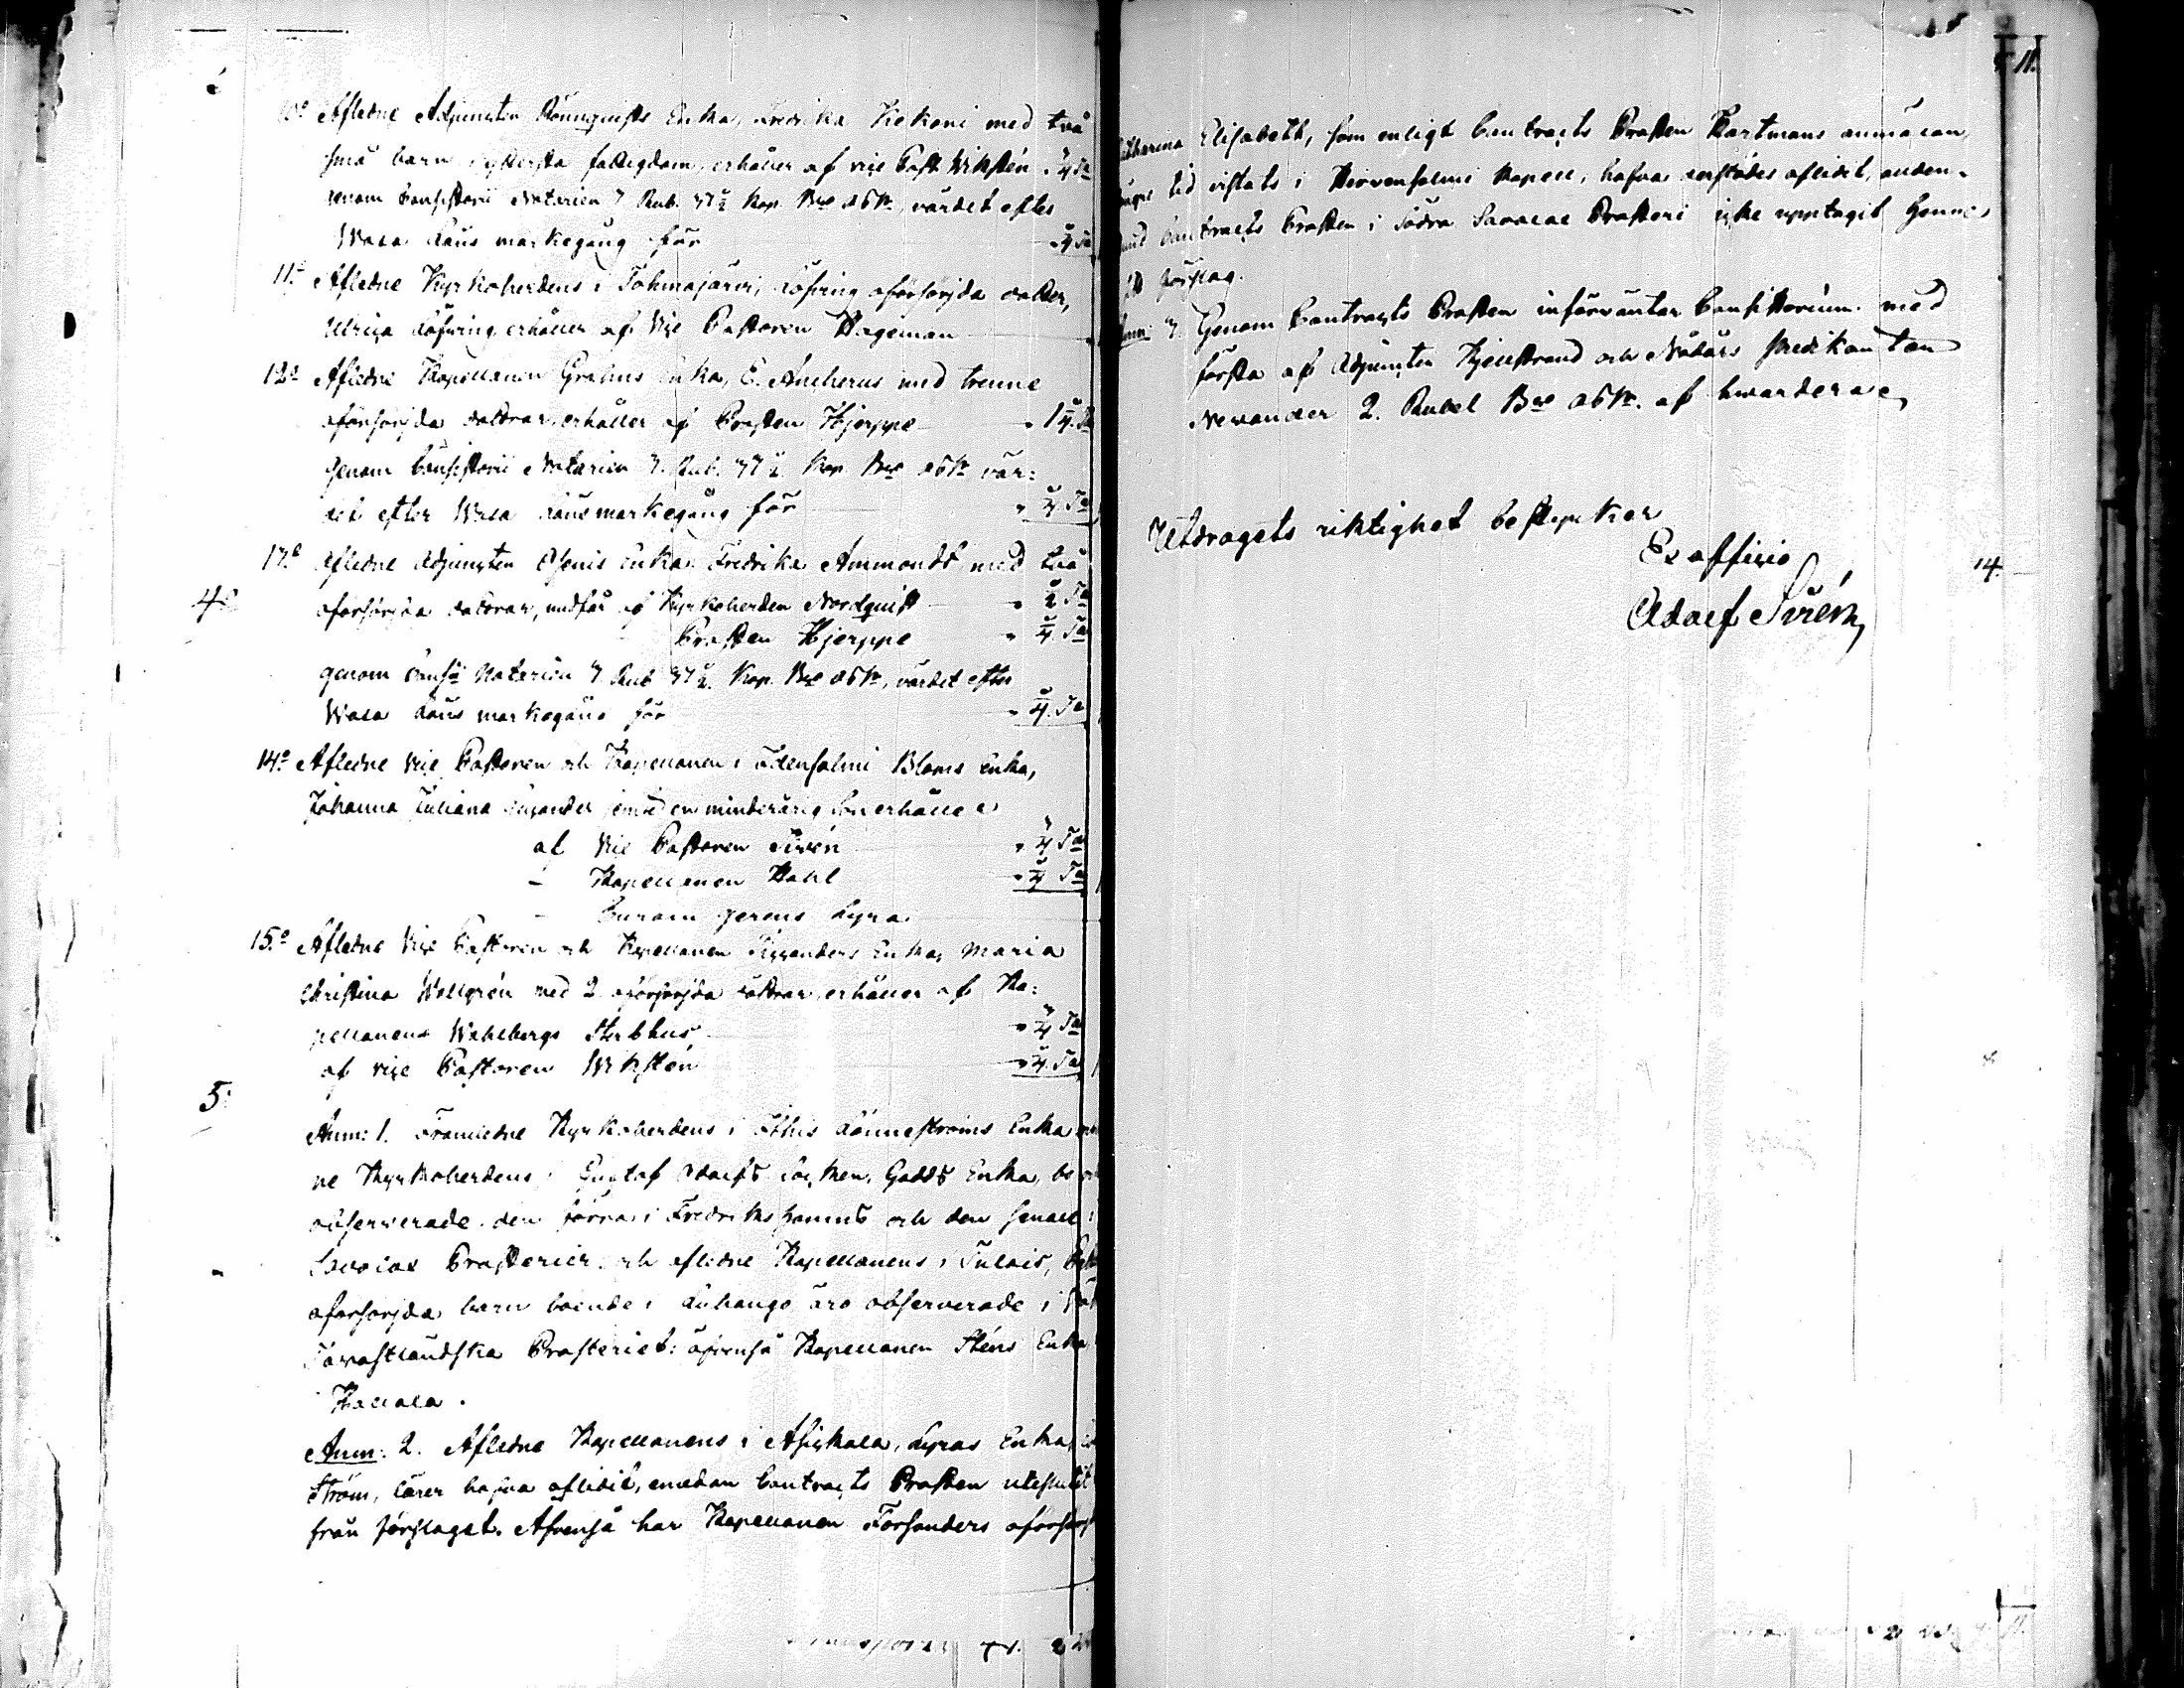 10:o Afledne Adjuncten Rönnquists Enka, Fredrika Kekoni med två
små barn i yttersta fattigdom, erhåller af vice Past. Wikstén " ¼ Ta
genom Consistorii Notarien 3 Rub. 37½ Kop. Bco Ass:r, värdet efter
Wasa Läns markegång för " ¼ Ta
11:o Afledne Kyrkoherdens i Tohmajärvi, Löfving oförsörjda dotter,
Ulrica Löfving erhåller af Vice Pastoren Hageman
12:o Afledne Kapellanen Grahns Enka, E. Ancherus med trenne
oförsörjda döttrar, erhåller af Prosten Hjerppe " 1¼ Ta
Genom Consistorii Notarien 3. Rub. 37½ Kop. Bco Ass:r vär:
det efter Wasa Läns markegång för " ¼ Ta
13:o Afledne Adjuncten Enka Fredrika Ammondt med två
4:o
oförsörjda döttrar, undfår af Kyrkoherden Nordquist " ½ Ta
Prosten Hjerppe " ¼ Ta
genom Notarien 3 Rub 37½ Kop. Bco Ass:r, värdet efter
Wasa Läns markegång för " ¼ Ta
14:o Afledne Vice Pastoren och Kapellanen i Idensalmi Bloms Enka,
Johanna Juliana jemte en minderårig Son erhåller
af Vice Pastoren Sirén " ¼ Ta
– Kapellanen Hahl " ¼ Ta
– Curam gerens Lyra
15:o Afledne Vice Pastoren och Kapellanen Enka, Maria
Christina Wallgrén med 2 oförsörjda döttrar, erhåller af Ka:
pellanens Wahlbergs Sterbhus " ¼ Ta
af Vice Pastoren Wikstén " ¼ Ta
5:
Anm: 1. Framledne Kyrkoherdens i Ithis Lönneströms Enka
ne Kyrkoherdens i Gustaf Adolfs Socken, Gadds Enka,
observerade, den förra i Fredrikshamns och den senare i
Savolax Prosterier och afledne Kapellanens i Tulois,
oförsörjda barn boende i Luhango äro observerade i
Tavastländska Prosteriet: äfvenså Kapellanen Sténs Enka
i Hattula.
Anm: 2. Afledne Kapellanens i Asickala, Lyras Enka,
Ström, lärer hafva aflidit, emedan Contracts Prosten uteslutit
från förslaget. Äfvenså har Kapellanen Forsanders
11.
Catharina Elisabeth, som enligt Contracts Prosten Hartmans anmälan,
tid vistats i Hirvensalmi Kapell, hafva derstädes aflidit,
Contracts Prosten i Södra Savolax Prosteri icke upptagit Henne
förslag.
Anm: 3. Genom Contracts Prosten införväntar Consistorium med
första af Adjuncten Kjellstrand och Nådårs Predikanten
Nevander 2. Rubel Bco Ass:r. af hwardera.
Utdragets riktighet bestyrker
Ex officio
Adolf Sirén,
14.